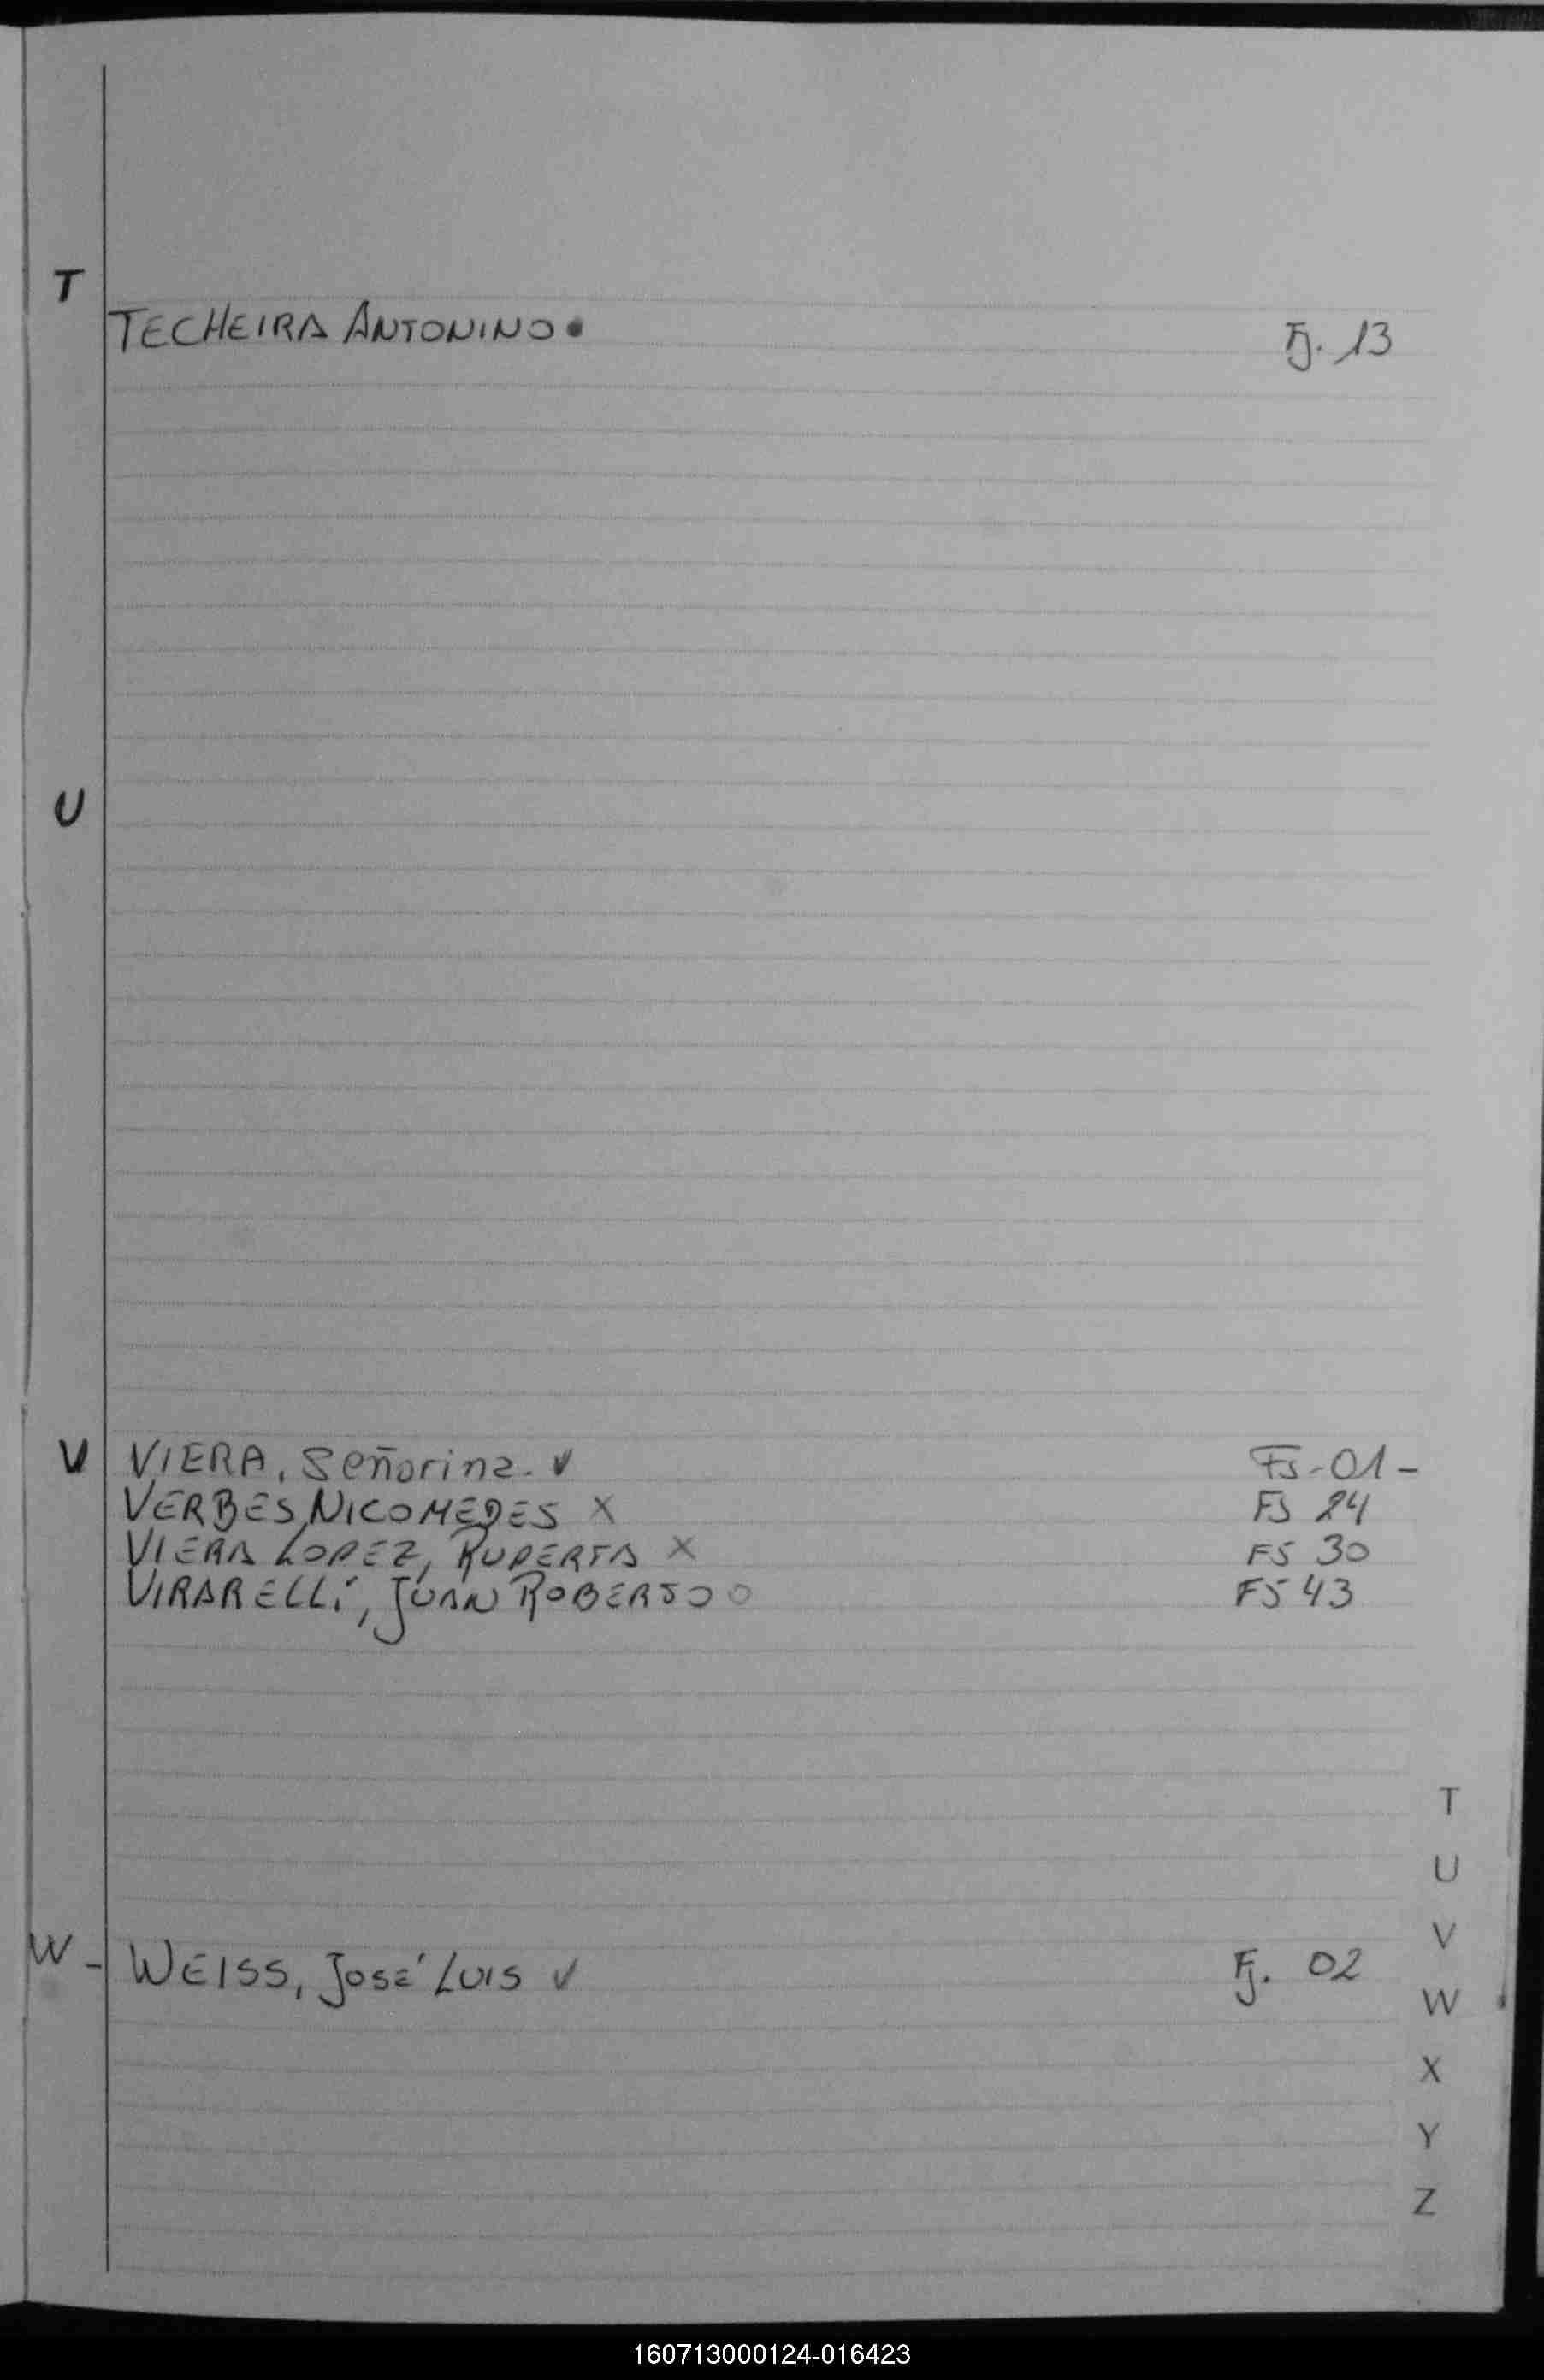 T
TECHEIRA ANTONINO Fj. 13
U
V VIERA, Señorina. Fs-01-
VERBES, NICOMEDES X FS 24
VIERA LOPEZ, RUPERTA X FS 30
VIRARELLI, JUAN ROBERTO O FS 43
W - WEISS, José LUIS Fj. 02
T
U
V
W
X
Y
Z
160713000124-016423